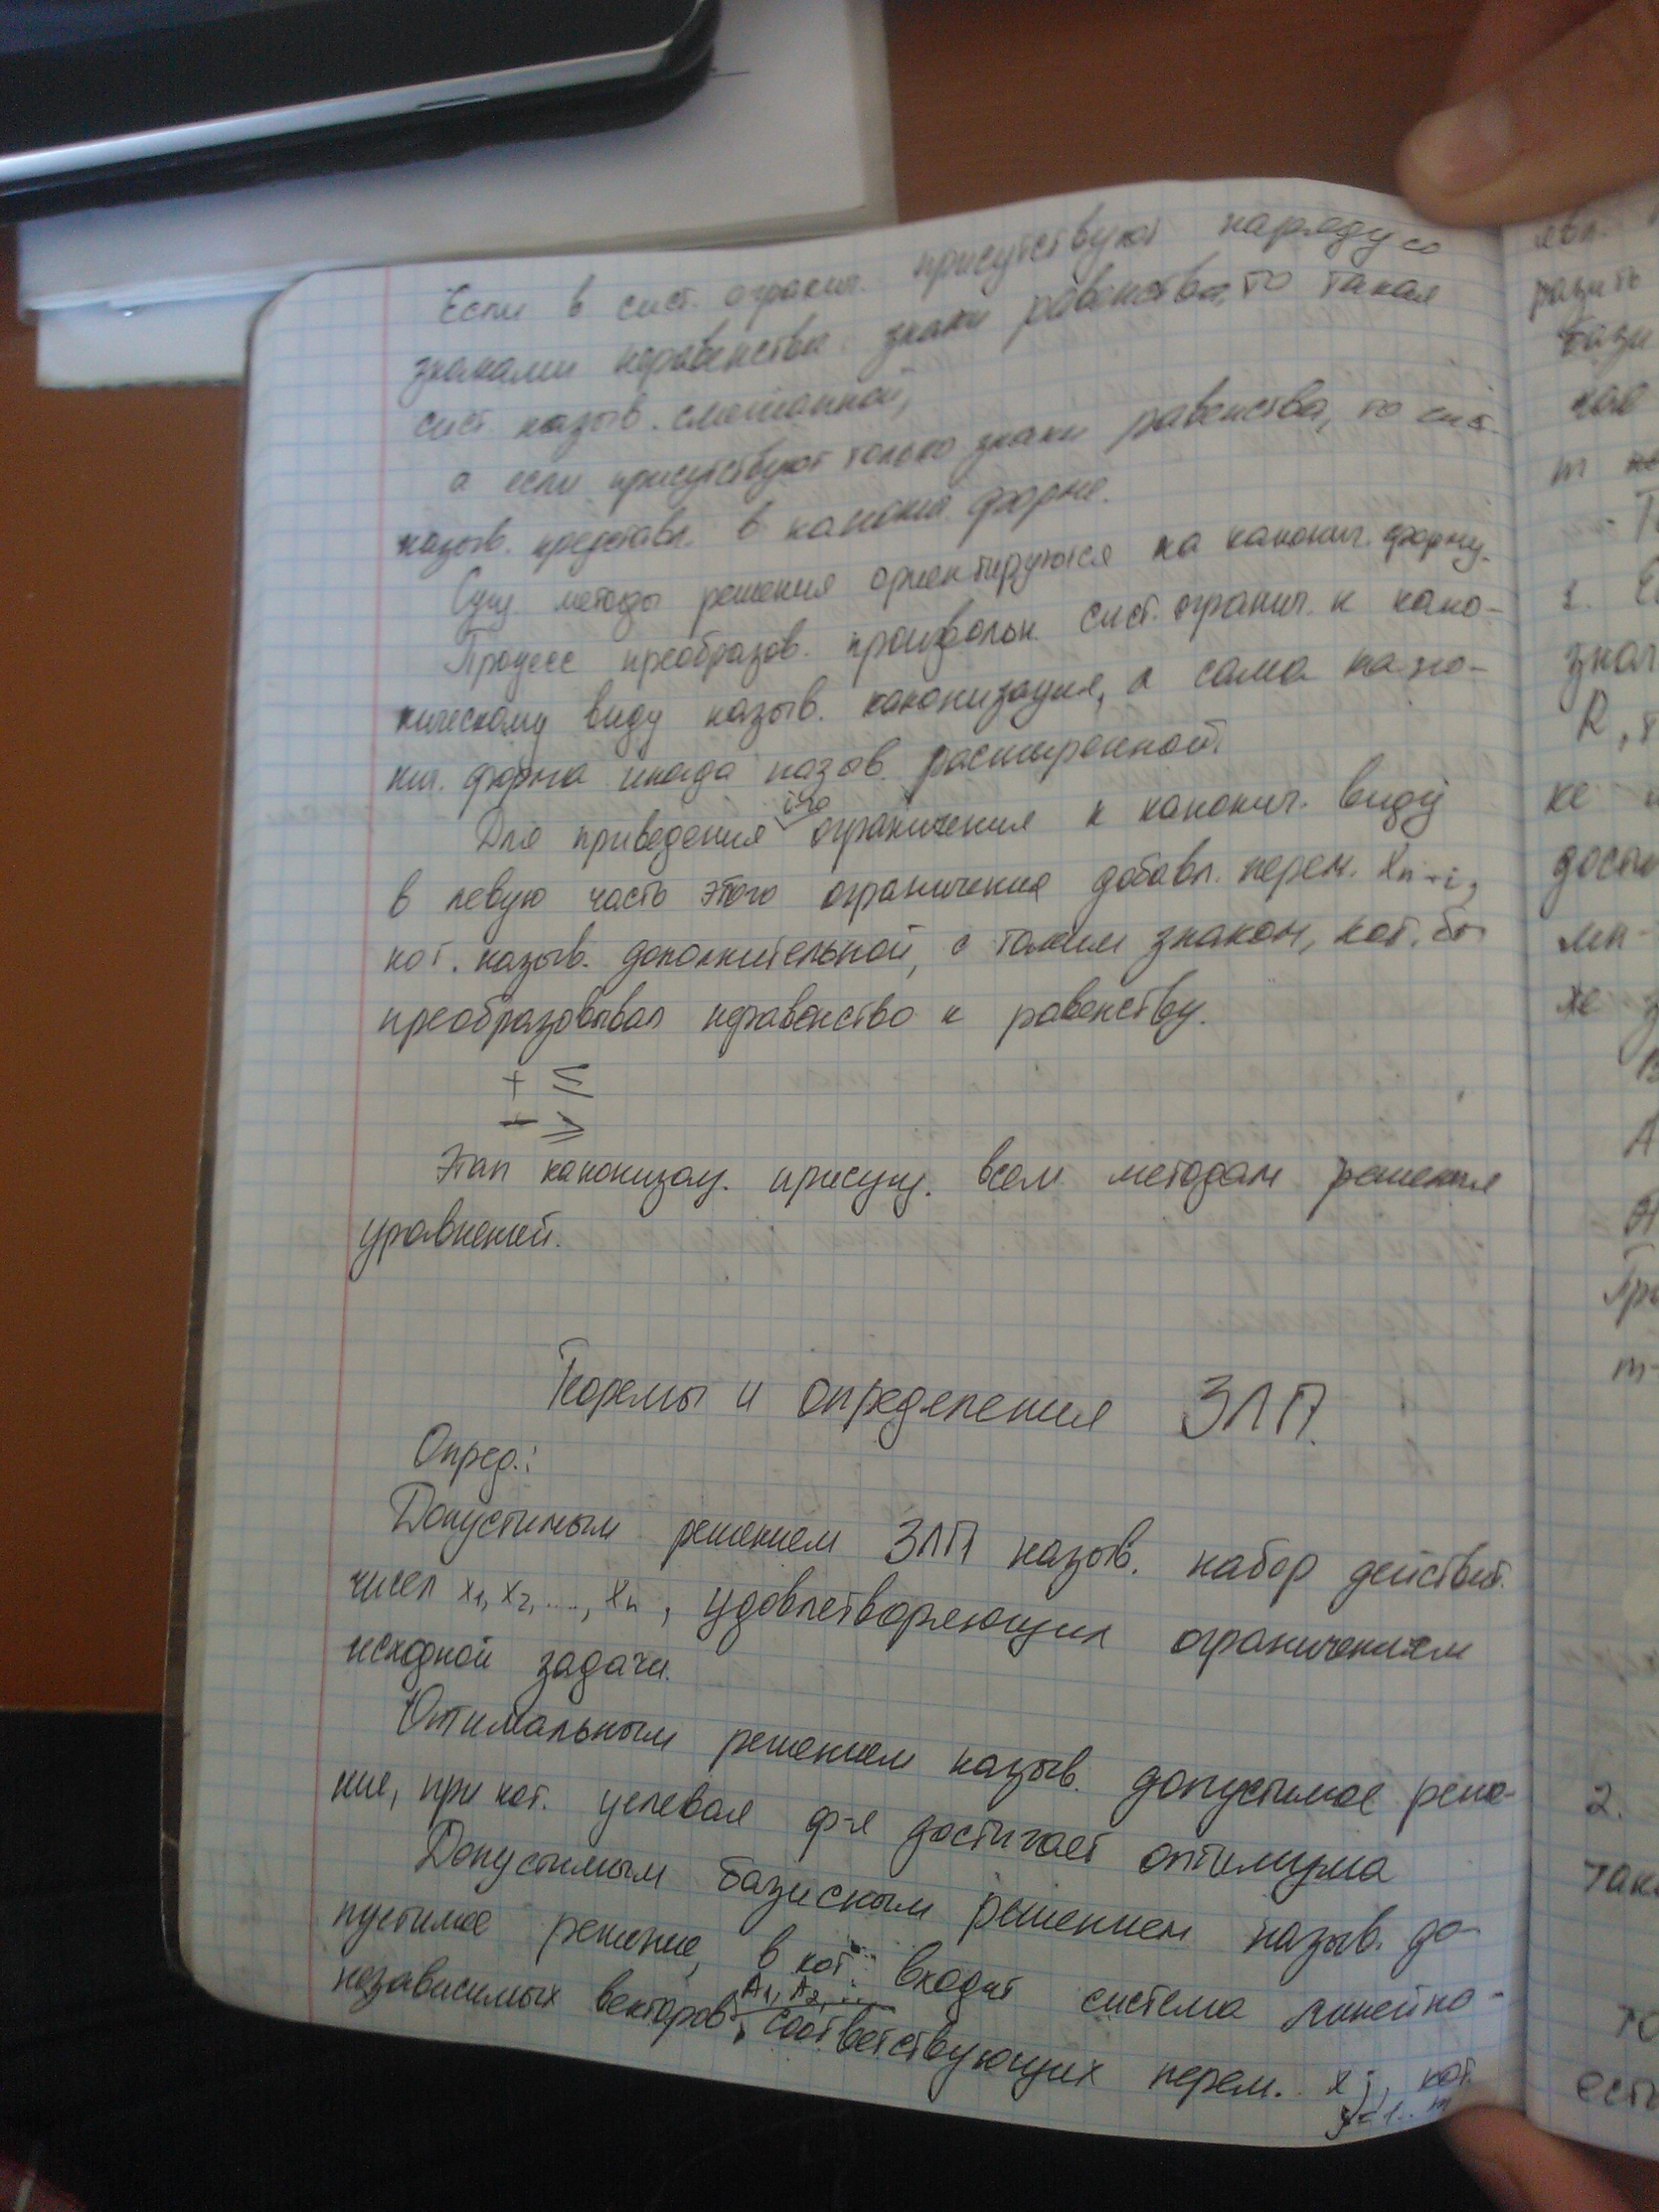 Если в сист. огранич. присутствуют наряду со
знаками неравенства знаки равенства, то такая
сист. назыв. смешанной,
а если присутствуют только знаки равенства, то сист.
назыв. представл. в канонич. форме.
Сущ. методы решения ориентируются на канонич. форму.
Процесс преобразов. произвольн. сист. огранич. к кано-
ническому виду назыв. канонизация, а сама кано-
нич. форма иногда назыв. расширенной.
Для приведения i-го ограничения к канонич. виду
в левую часть этого ограничения добавл. перем. xn+i,
кот. назыв. дополнительной, с таким знаком, кот. бы
преобразовывал неравенство к равенству.
+ ≤
- ≥
Этап канонизац. присущ. всем методам решения
уравнений.
Теоремы и определения ЗЛП.
Опред.:
Допустимым решением ЗЛП назыв. набор действит.
чисел x1, x2, ..., xn, удовлетворяющих ограничениям
исходной задачи.
Оптимальным решением назыв. допустимое реше-
ние, при кот. целевая ф-я достигает оптимума
Допустимым базисным решением назыв. до-
пустимое решение, в кот. входит система линейно-
независимых векторов A1, A2, ... соответствующих перем. xj, кот.
j=1..m
явл.
разить
бази
m
1.
знач
R,
ке
A
2.
так
то
есть